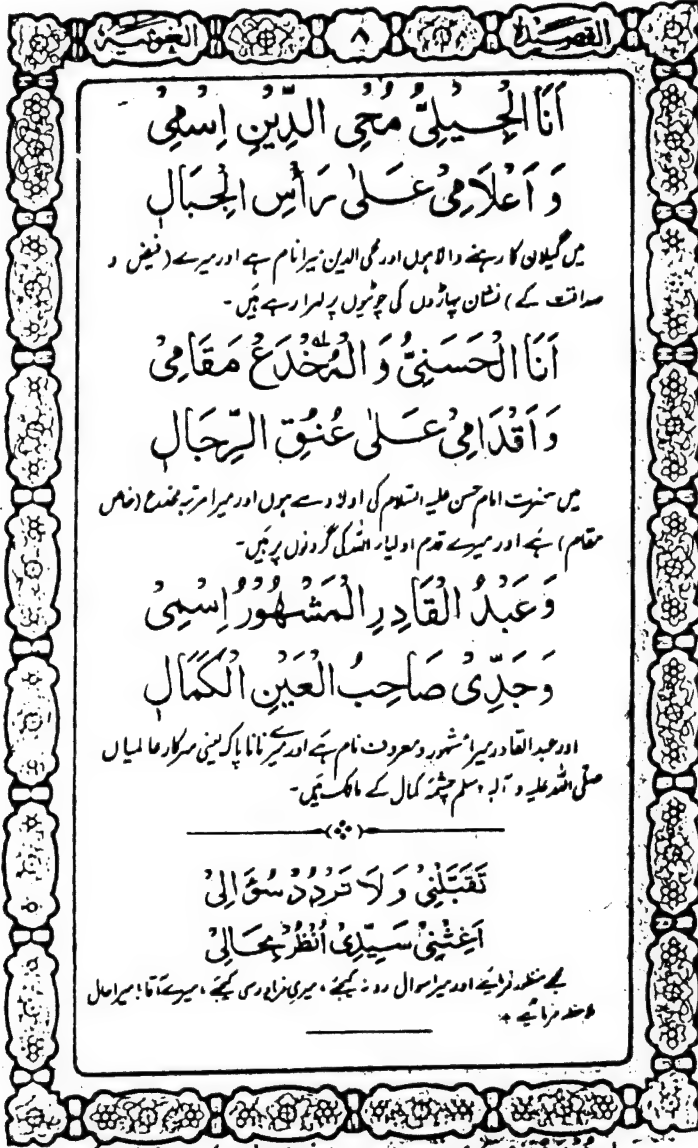 القصيدة ٨ الغوثية
اَنَا الْجِيْلِيُّ مُحْيِ الدِّيْنِ اِسْمِيْ
وَ اَعْلَامِيْ عَلٰى رَأْسِ الْجِبَالٖ
میں گیلان کا رہنے والا ہوں اور محی الدین میرا نام ہے اور میرے (فیض و
صداقت کے) نشان پہاڑوں کی چوٹیوں پر لہرا رہے ہیں۔
اَنَا الْحَسَنِيُّ وَ الْمُخْدَعْ مَقَامِيْ
وَ اَقْدَامِيْ عَلٰى عُنُقِ الرِّجَالٖ
میں حضرت امام حسن علیہ السلام کی اولاد سے ہوں اور میرا مرتبہ مخدع (خاص
مقام) ہے اور میرے قدم اولیاء اللہ کی گردنوں پر ہیں۔
وَ عَبْدُ الْقَادِرِ الْمَشْهُوْرُ اِسْمِيْ
وَ جَدِّيْ صَاحِبُ الْعَيْنِ الْكَمَالٖ
اور عبد القادر میرا مشہور و معروف نام ہے اور میرے نانا پاک یعنی سرکار عالمیاں
صلی اللہ علیہ و آلہ وسلم چشمۂ کمال کے مالک ہیں۔
تَقَبَّلْنِيْ وَ لَا تَرْدُدْ سُؤَالِيْ
اَغِثْنِيْ سَيِّدِيْ اُنْظُرْ بِحَالِيْ
مجھے منظور فرمائیے اور میرا سوال رد نہ کیجئے، میری فریاد رسی کیجئے، میرے آقا! میرا حال
ملاحظہ فرمائیے +